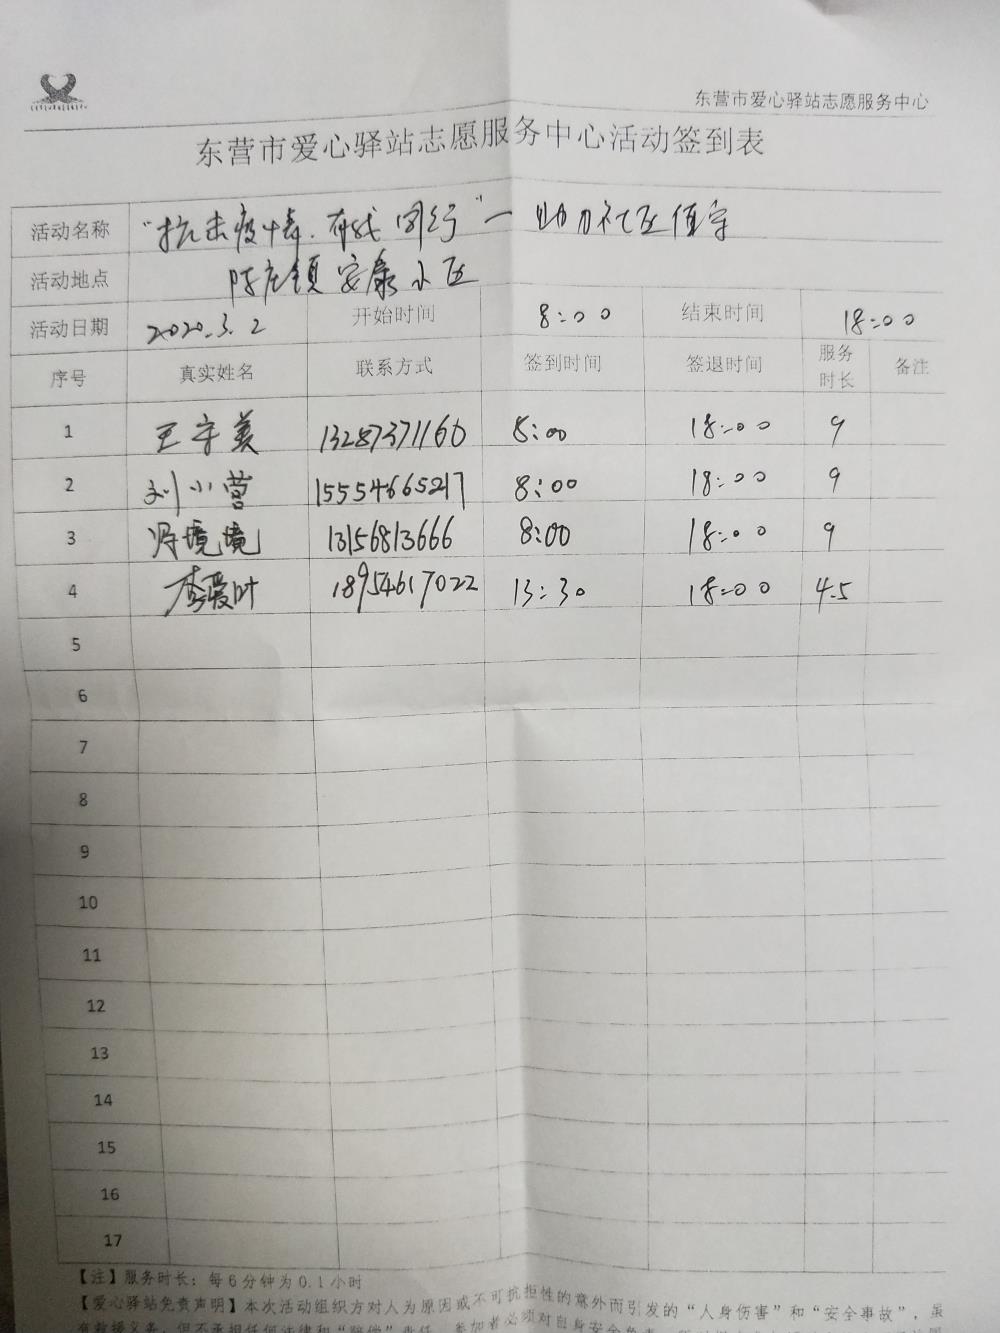 东营市爱心驿站志愿服务中心
东营市爱心驿站志愿服务中心活动签到表
活动名称 "抗击疫情.有我同行"一助力社区值守
活动地点 陈庄镇安康小区
活动日期 2020.3.2 开始时间 8:00 结束时间 18:00
序号 真实姓名 联系方式 签到时间 签退时间 服务时长 备注
1 王守美 13287371160 8:00 18:00 9
2 刘小营 15554665217 8:00 18:00 9
3 冯境境 13156813666 8:00 18:00 9
4 李爱叶 18954617022 13:30 18:00 4.5
5
6
7
8
9
10
11
12
13
14
15
16
17
【注】服务时长：每6分钟为0.1小时
【爱心驿站免责声明】本次活动组织方对人为原因或不可抗拒性的意外而引发的“人身伤害”和“安全事故”，虽
有救援义务，但不承担任何法律和“赔偿”责任，参加者必须对自身安全负责